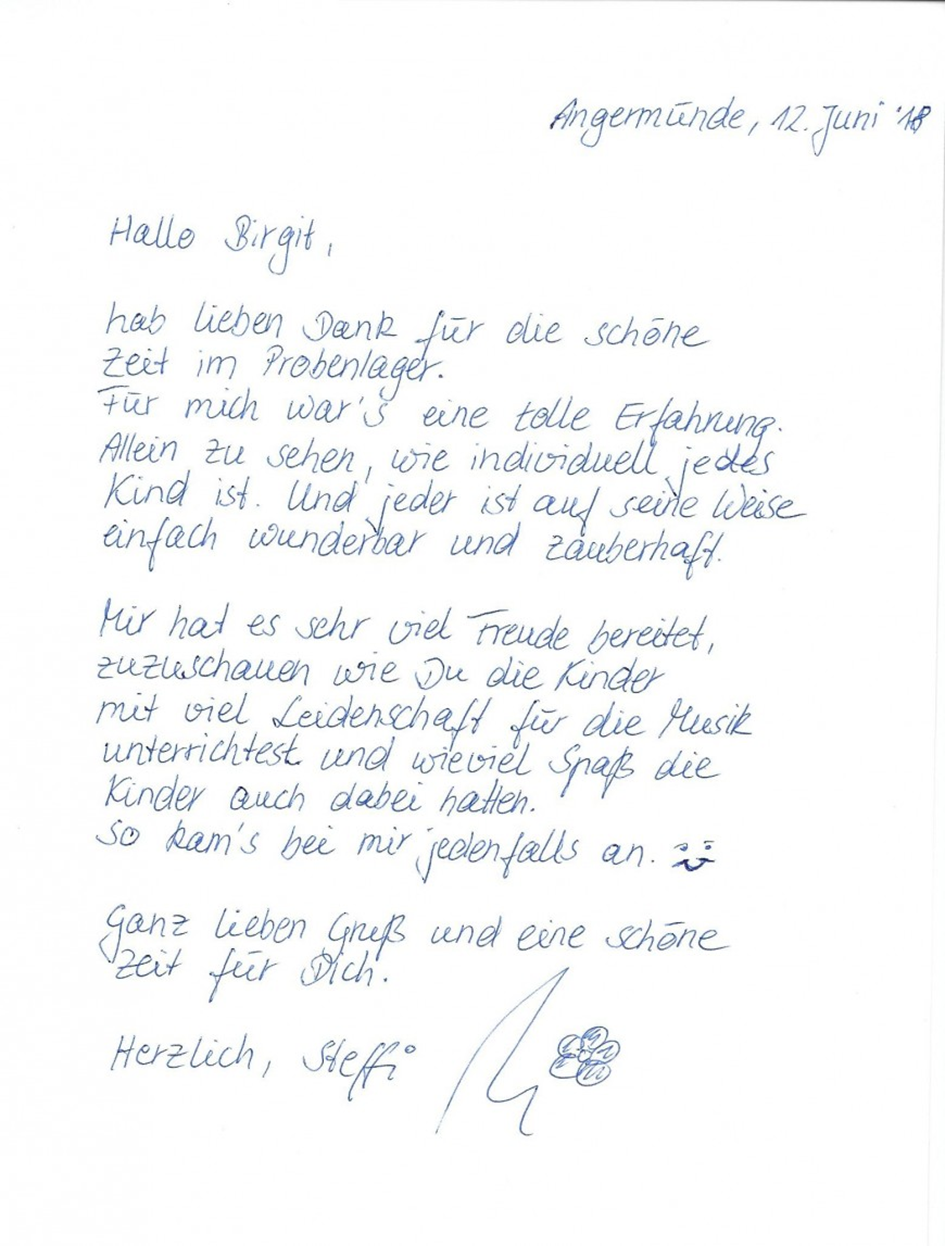 Angermünde, 12. Juni '18
Hallo Birgit,
hab lieben Dank für die schöne
Zeit im Probenlager.
Für mich war's eine tolle Erfahrung.
Allein zu sehen, wie individuell jedes
Kind ist. Und jeder ist auf seine Weise
einfach wunderbar und zauberhaft.
Mir hat es sehr viel Freude bereitet,
zuzuschauen wie Du die Kinder
mit viel Leidenschaft für die Musik
unterrichtest und wieviel Spaß die
Kinder auch dabei hatten.
So kam's bei mir jedenfalls an.
Ganz lieben Gruß und eine schöne
Zeit für Dich.
Herzlich, Steffi